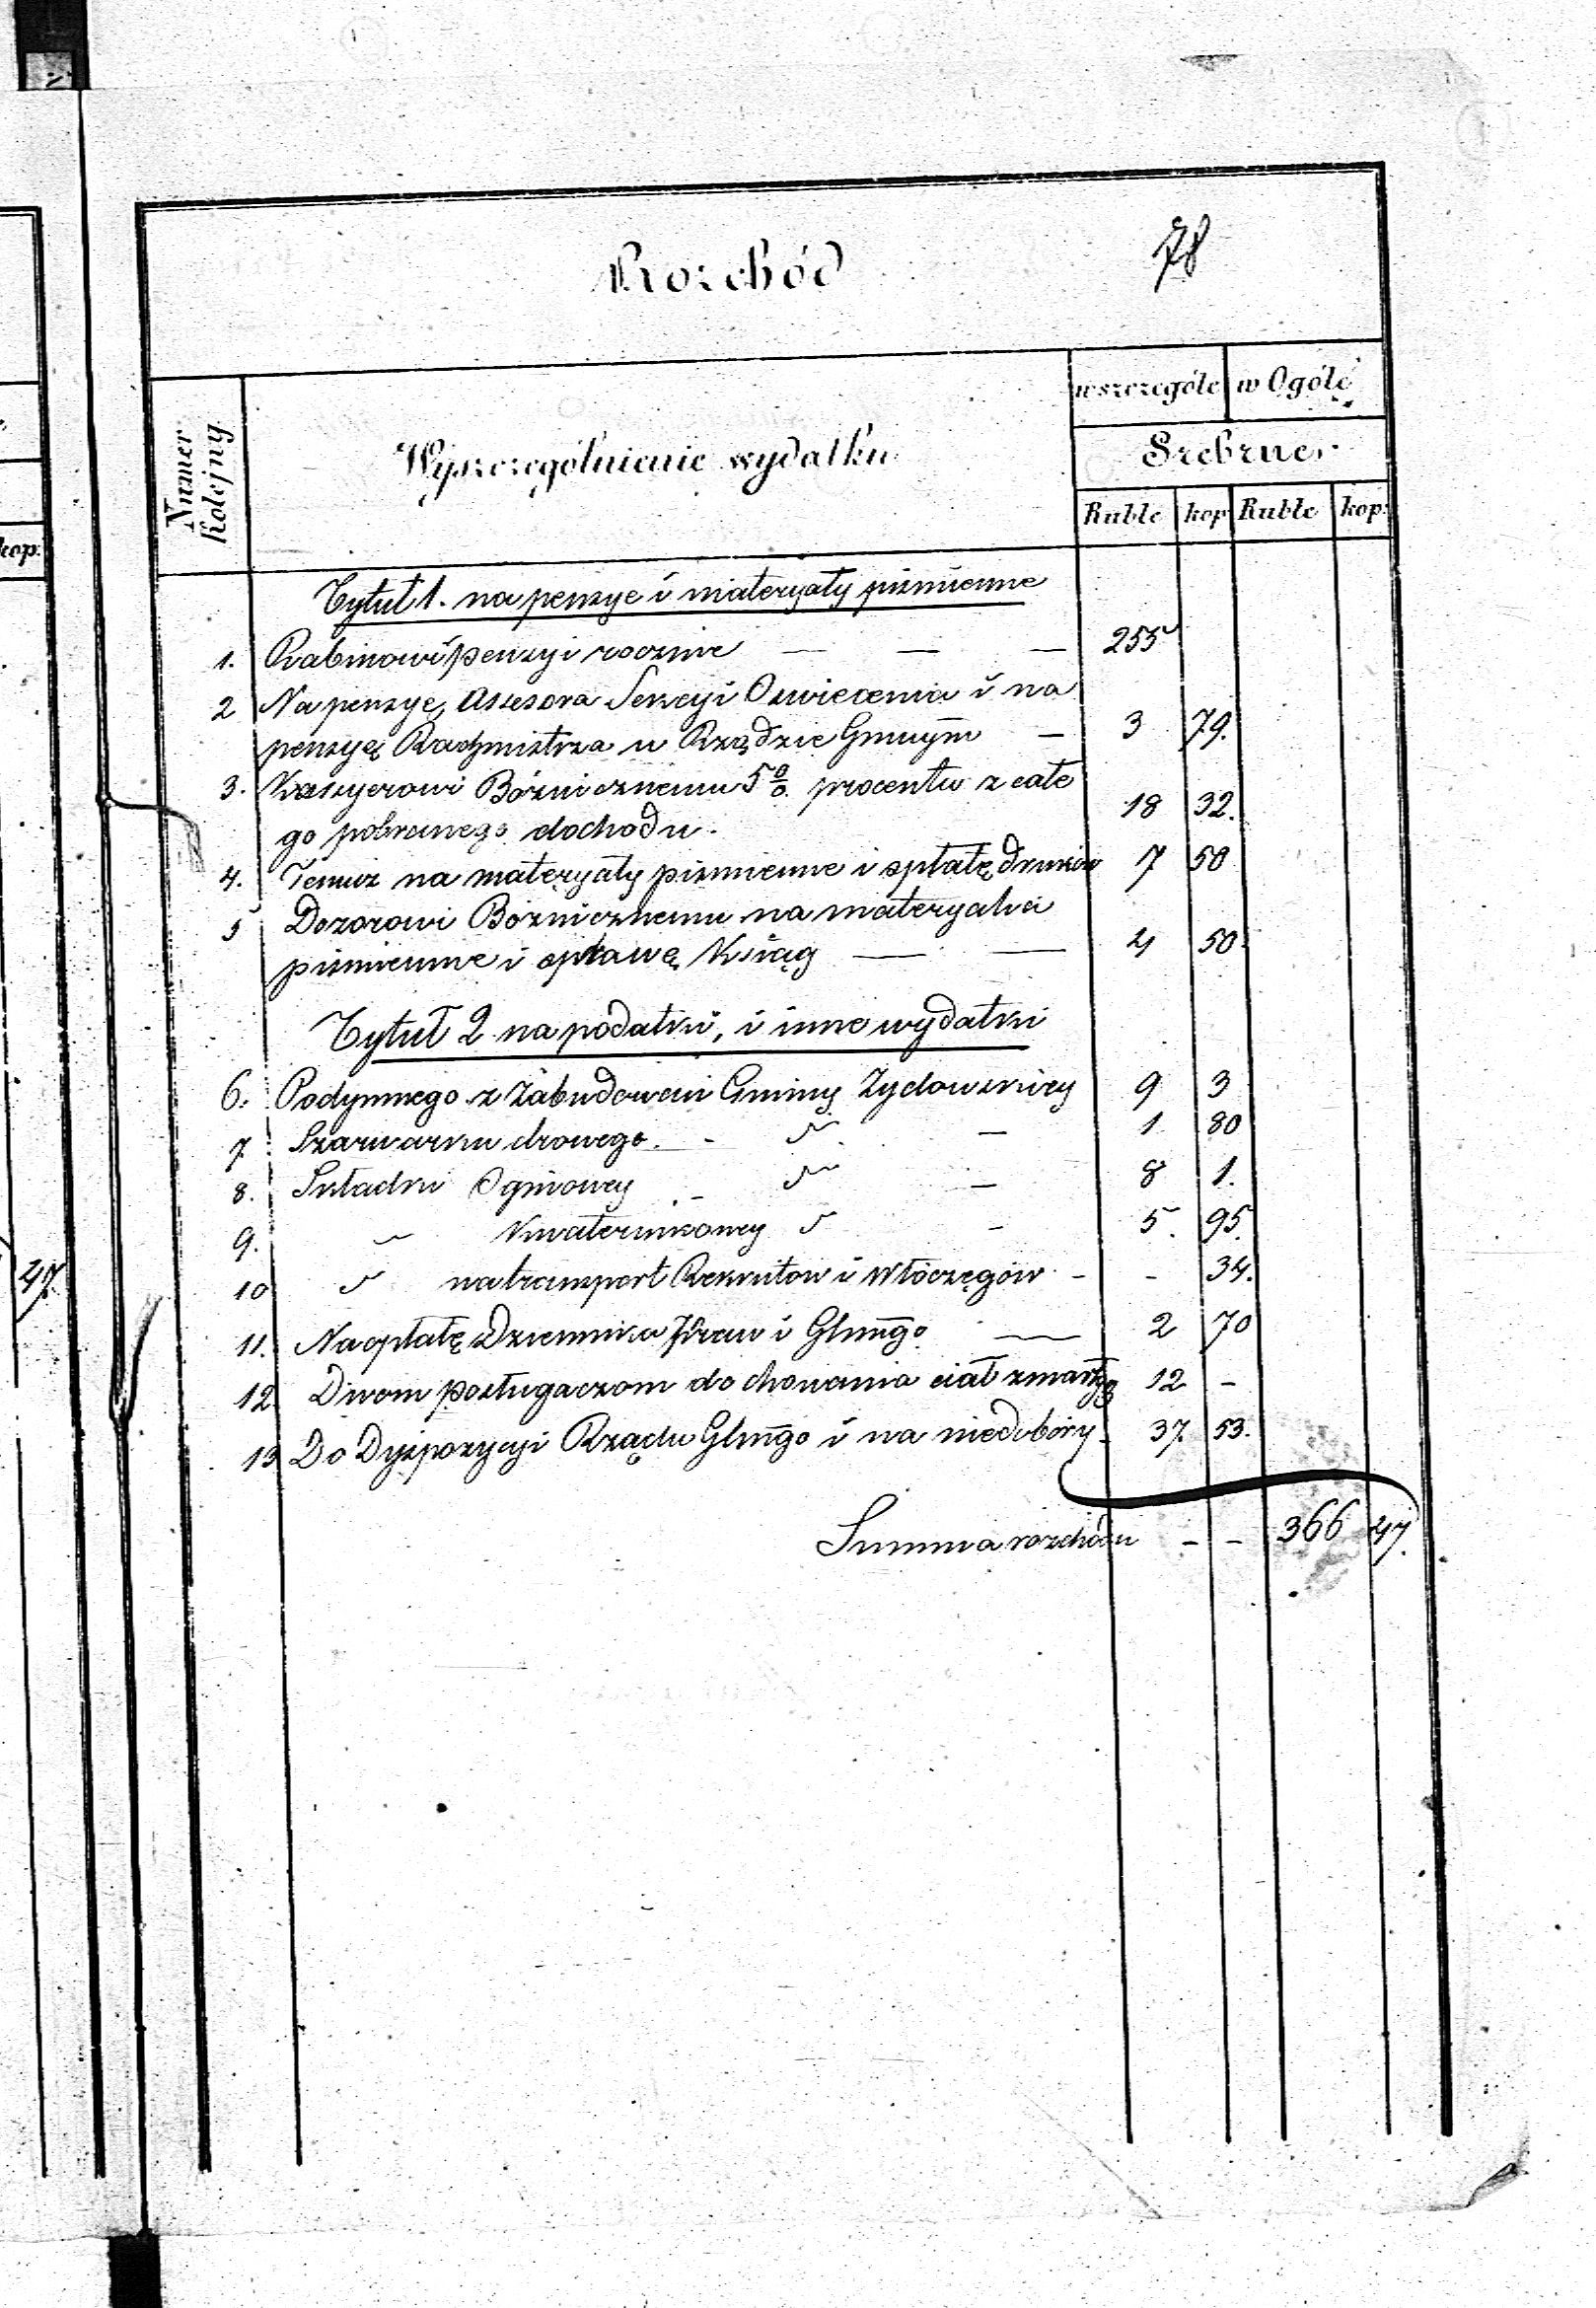 Rozchód
78
Numer Kolejny
Wyszczególnienie wydatku
w szczególe
w Ogóle
Srebrne
Ruble kop Ruble kop:
kop:
Tytuł 1. na pensye i materyały piśmienne
1. Rabinowi pensyi rocznie — — — 255
2 Na pensyę Assesora Sekcyi Oswiecenia i na
pensyę Rachmistrza w Rządzie Gmnym — 3 79.
3. Kassyerowi Bóżnicznemu 5 % procentu z całe
go pobranego dochodu. 18 32.
4. Temuż na materyały piśmienne i opłatę druków 7 50
5 Dozorowi Bóżnicznemu na materyały
piśmienne i oprawę Książg — — 4 50.
Tytuł 2 na podatki, i inne wydatki
6. Podymnego z Zabudowań Gminy Żydowskiey 9 3
7 Szarwarku drowego. - " — 1 80
8. Składki Ogniowey - " — 8 1.
9. " Kwaterunkowey " - 5. 95.
10 " na transport Rekrutow i Włóczęgów - - 34.
11. Na opłatę Dziennika Praw i Gbrngo — 2 70
12. Dwom posługaczom do chowania ciał zmarłych 12 -
13 Do Dyspozycyi Rządu Gbrngo i na niedobory - 37. 53.
Summa rozchodu - - 366 47.
47.